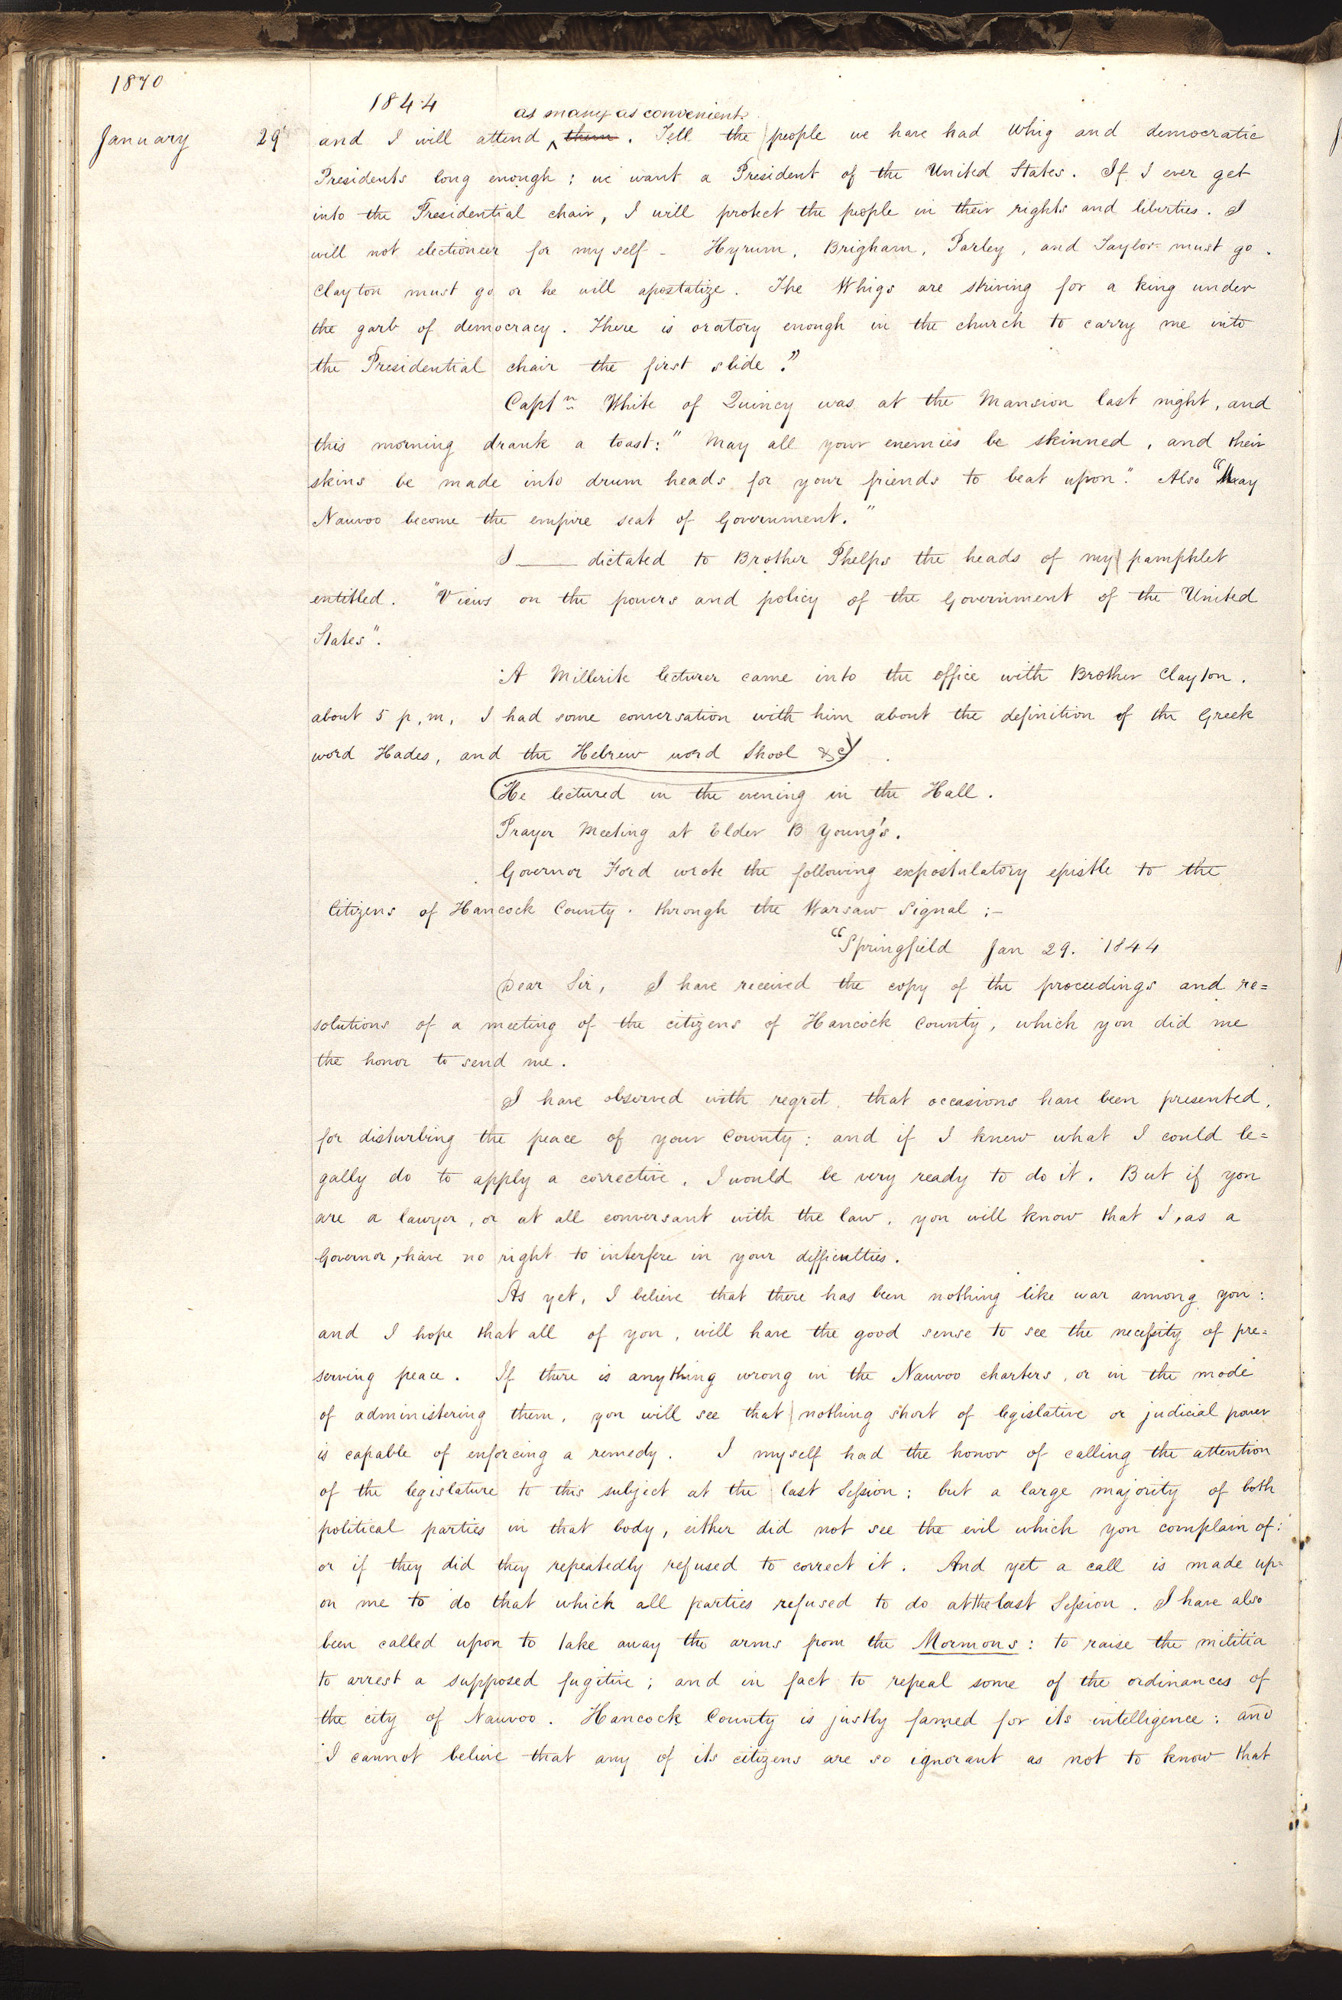 1870
1844
January 29
as many as convenient
and I will attend ^ them. Tell the people we have had Whig and democratic
Presidents long enough; we want a President of the United States. If I ever get
into the Presidential chair, I will protect the people in their rights and liberties. I
will not electioneer for my self - Hyrum, Brigham, Parley, and Taylor must go.
Clayton must go or he will apostatize. The Whigs are striving for a king under
the garb of democracy. There is oratory enough in the church to carry me into
the Presidential chair the first slide."
Captn White of Quincy was at the Mansion last night, and
this morning drank a toast: "May all your enemies be skinned, and their
skins be made into drum heads for your friends to beat upon." Also "May
Nauvoo become the empire seat of Government."
I —— dictated to Brother Phelps the heads of my pamphlet
entitled. "Views on the powers and policy of the Government of the United
States".
A Millerite lecturer came into the office with Brother Clayton.
about 5 p.m, I had some conversation with him about the definition of the Greek
word Hades, and the Hebrew word Sheol &c
He lectured in the evening in the Hall.
Prayer Meeting at Elder B Young's.
Governor Ford wrote the following expostulatory epistle to the
Citizens of Hancock County. through the Warsaw Signal:—
"Springfield Jan 29. 1844
Dear Sir, I have received the copy of the proceedings and re=
solutions of a meeting of the citizens of Hancock County, which you did me
the honor to send me.
I have observed with regret, that occasions have been presented,
for disturbing the peace of your County: and if I knew what I could le=
gally do to apply a corrective, I would be very ready to do it. But if you
are a lawyer, or at all conversant with the law, you will know that I, as a
Governor, have no right to interfere in your difficulties.
As yet, I believe that there has been nothing like war among you:
and I hope that all of you, will have the good sense to see the necessity of pre=
serving peace. If there is anything wrong in the Nauvoo charters, or in the mode
of administering them, you will see that nothing short of legislative or judicial power
is capable of enforcing a remedy. I myself had the honor of calling the attention
of the legislature to this subject at the last Session; but a large majority of both
political parties in that body, either did not see the evil which you complain of:
or if they did they repeatedly refused to correct it. And yet a call is made up-
on me to do that which all parties refused to do at the last Session. I have also
been called upon to take away the arms from the Mormons: to raise the militia
to arrest a supposed fugitive; and in fact to repeal some of the ordinances of
the city of Nauvoo. Hancock County is justly famed for its intelligence: and
I cannot believe that any of its citizens are so ignorant as not to know that